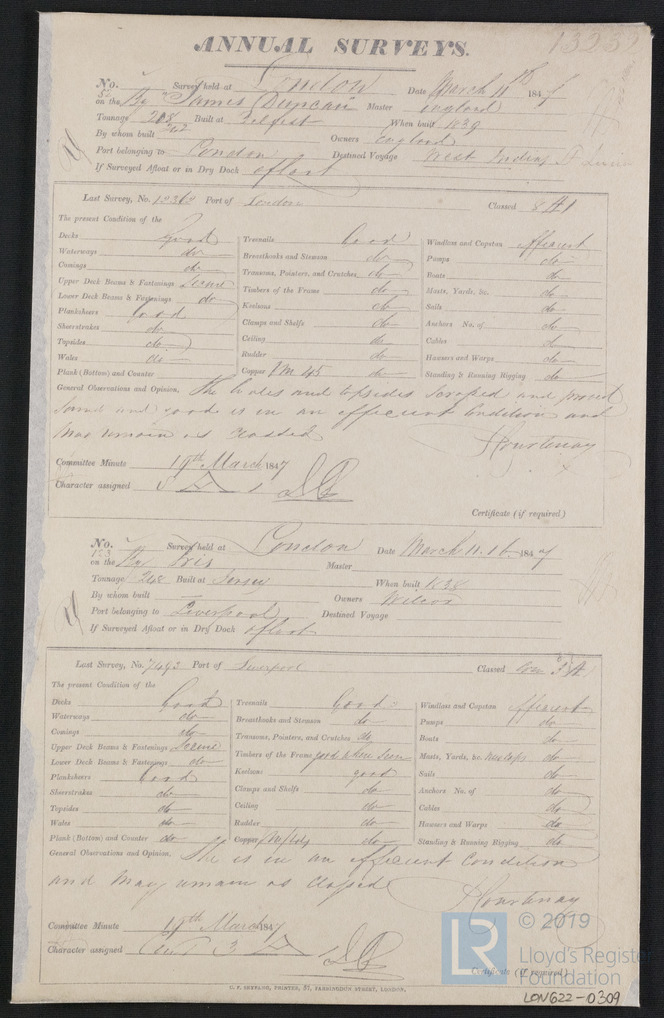 ANNUAL SURVEYS.
No. 52 Survey held at London Date March 11th 1847
on the Bg James Duncan Master England
Tonnage 218 242 Built at Belfast When built 1839
By whom built Owners England
Port belonging to London Destined Voyage West Indies
If Surveyed Afloat or in Dry Dock afloat
Last Survey, No. 12362 Port of London Classed 8 A 1
The present Condition of the
Decks Good
Waterways do
Comings do
Upper Deck Beams & Fastenings Secure
Lower Deck Beams & Fastenings do
Planksheers Good
Sheerstrakes do
Topsides do
Wales do
Plank (Bottom) and Counter
Treenails Good
Breasthooks and Stemson do
Transoms, Pointers, and Crutches do
Timbers of the Frame do
Keelsons do
Clamps and Shelfs do
Ceiling do
Rudder do
Copper F M 45 do
Windlass and Capstan Efficient
Pumps do
Boats do
Masts, Yards, &c. do
Sails do
Anchors No. of do
Cables do
Hawsers and Warps do
Standing & Running Rigging do
General Observations and Opinion, The Wales and topsides scraped and proved
sound and good is in an efficient Condition and
may remain as classed
Courtenay
Committee Minute 19th March 1847
Character assigned 8 A 1
Certificate (if required)
No. 153 Survey held at London Date March 11.16. 1847
on the Bg Iris Master
Tonnage 248 Built at Jersey When built 1838
By whom built Owners Wilcox
Port belonging to Liverpool Destined Voyage
If Surveyed Afloat or in Dry Dock afloat
Last Survey, No. 7493 Port of Liverpool Classed Con 3 A
The present Condition of the
Decks Good
Waterways do
Comings do
Upper Deck Beams & Fastenings Secure
Lower Deck Beams & Fastenings do
Planksheers Good
Sheerstrakes do
Topsides do
Wales do
Plank (Bottom) and Counter do
Treenails Good
Breasthooks and Stemson do
Transoms, Pointers, and Crutches do
Timbers of the Frame good where seen
Keelsons good
Clamps and Shelfs do
Ceiling do
Rudder do
Copper do
Windlass and Capstan Efficient
Pumps do
Boats do
Masts, Yards, &c. do
Sails do
Anchors No. of do
Cables do
Hawsers and Warps do
Standing & Running Rigging do
General Observations and Opinion, She is in an efficient Condition
and may remain as classed
Courtenay
Committee Minute 19th March 1847
Character assigned Con 3 A
Certificate (if required)
C. F. SEYFANG, PRINTER, 57, FARRINGDON STREET, LONDON.
LR © 2019
Lloyd's Register
Foundation
LON622-0309